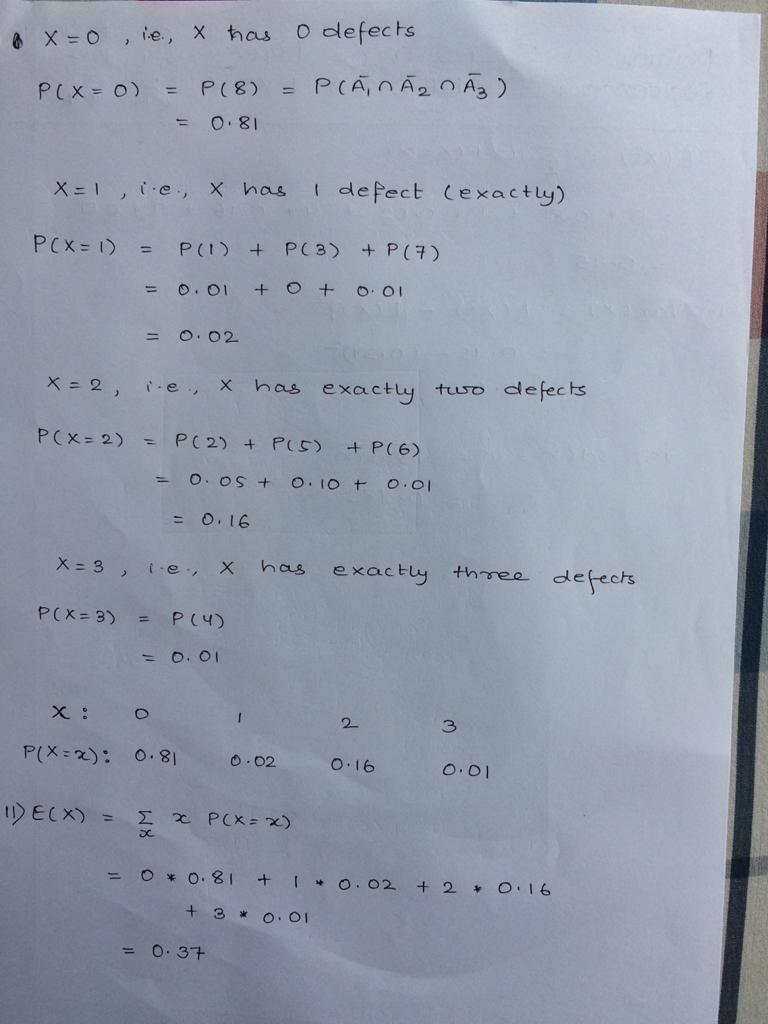 X = 0 , i.e., X has 0 defects
P(X = 0) = P(8) = P(Ā₁ ∩ Ā₂ ∩ Ā₃)
= 0.81
X = 1 , i.e., X has 1 defect (exactly)
P(X = 1) = P(1) + P(3) + P(7)
= 0.01 + 0 + 0.01
= 0.02
X = 2 , i.e., X has exactly two defects
P(X = 2) = P(2) + P(5) + P(6)
= 0.05 + 0.10 + 0.01
= 0.16
X = 3 , i.e., X has exactly three defects
P(X = 3) = P(4)
= 0.01
X : 0 1 2 3
P(X = x) : 0.81 0.02 0.16 0.01
11) E(X) = Σₓ x P(X = x)
= 0 * 0.81 + 1 * 0.02 + 2 * 0.16
+ 3 * 0.01
= 0.37